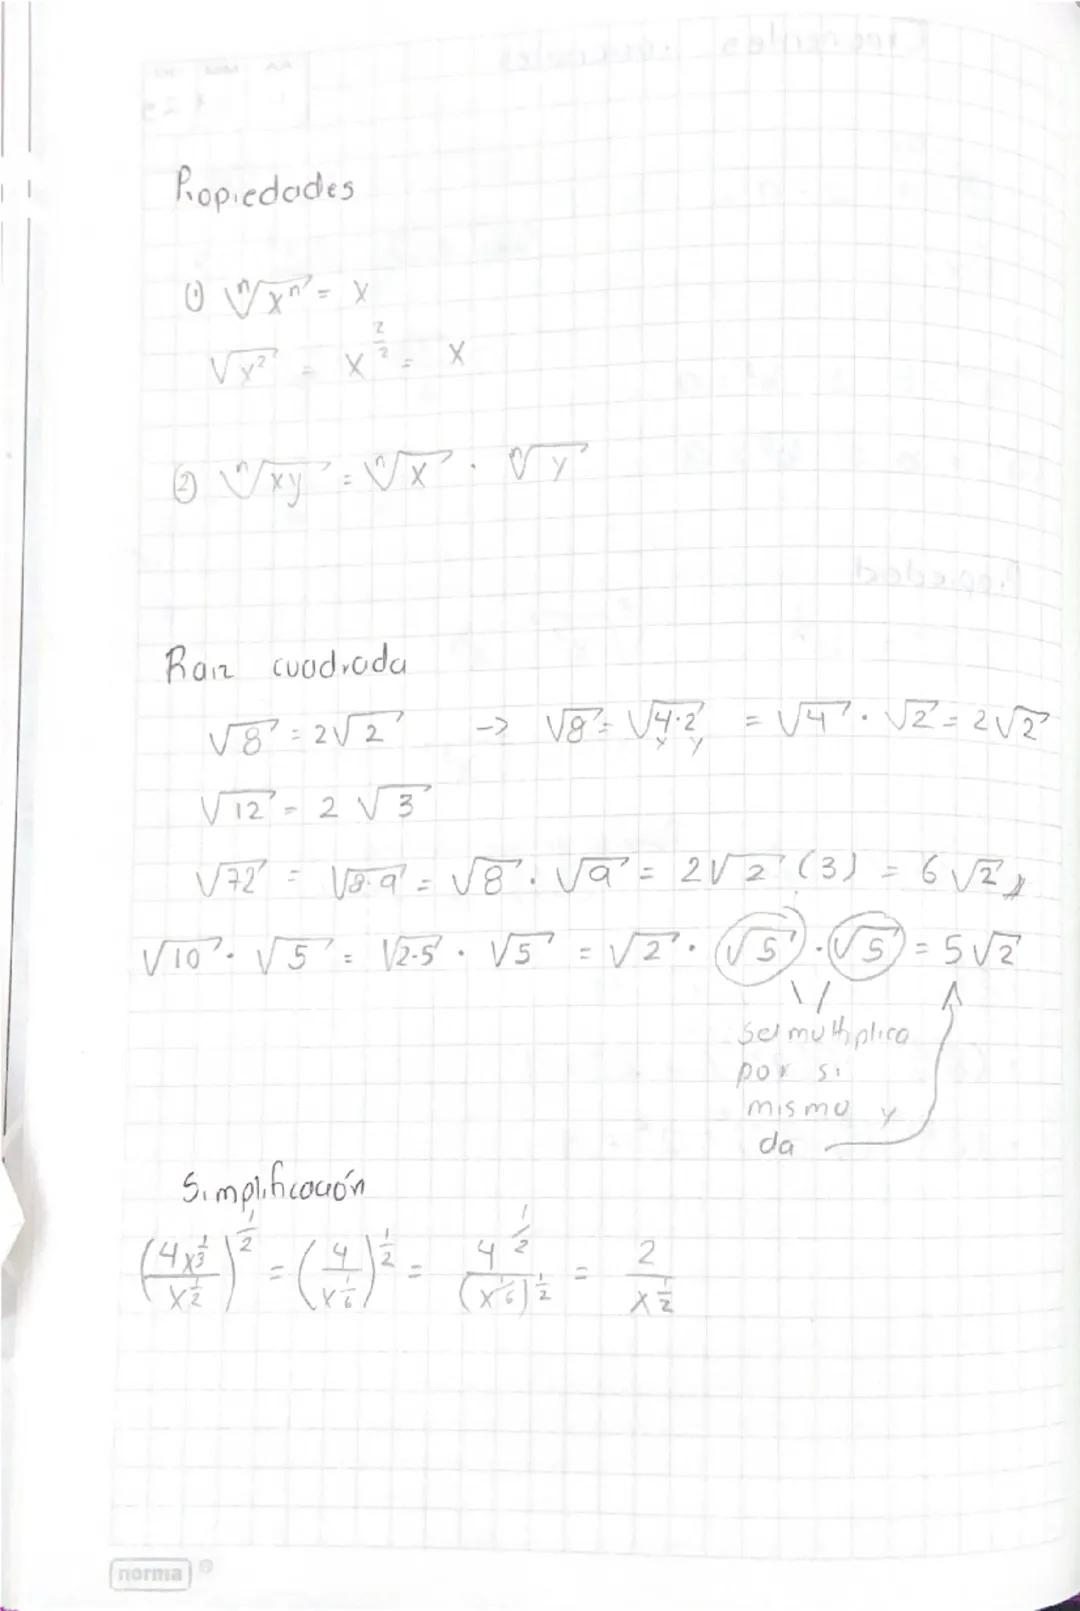 Propiedades
① ⁿ√xⁿ = x
√x² = x^(2/2) = x
② ⁿ√xy = ⁿ√x · ⁿ√y
Raiz cuadrada
√8 = 2√2 -> √8 = √4·2 = √4 · √2 = 2√2
x y
√12 = 2√3
√72 = √8·9 = √8 · √9 = 2√2 (3) = 6√2
√10 · √5 = √2·5 · √5 = √2 · √5 · √5 = 5√2
Se multiplica
por si
mismo y
da
Simplificación
(4x^(1/3) / x^(1/2))^(1/2) = (4 / x^(1/6))^(1/2) = 4^(1/2) / (x^(1/6))^(1/2) = 2 / x^(1/2)
norma